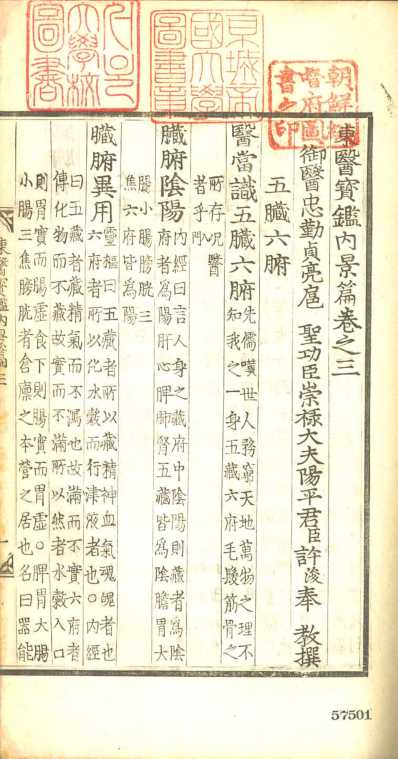 朝鮮總
督府圖
書之印
京城帝
國大學
圖書章
大學校
圖書
東醫寶鑑內景篇卷之三
御醫忠勤貞亮扈 聖功臣崇祿大夫陽平君臣許浚奉 教撰
五臟六腑
醫當識五臟六腑
先儒嘆世人務窮天地萬物之理不
知我之一身五藏六府毛髮筋骨之
所存况醫
者乎入門
臟腑陰陽
內經曰言人身之藏府中陰陽則藏者爲陰
府者爲陽肝心脾肺腎五藏皆爲陰膽胃大
腸小腸膀胱三
焦六府皆爲陽
臟腑異用
靈樞曰五藏者所以藏精神血氣魂魄者也
六府者所以化水穀而行津液者也○內經
曰五藏者藏精氣而不瀉也故滿而不實六府者
傳化物而不藏故實而不滿所以然者水穀入口
則胃實而腸虛食下則腸實而胃虛○脾胃大腸
小腸三焦膀胱者倉廩之本營之居也名曰器能
57501